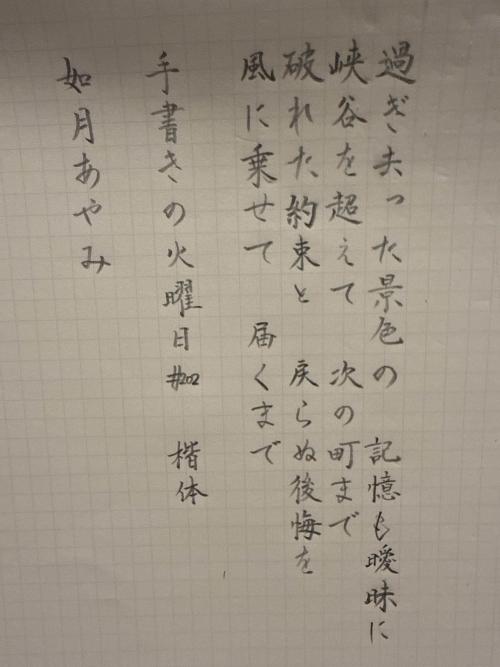 過ぎ去った景色の　記憶も曖昧に
峡谷を超えて　次の町まで
破れた約束と　戻らぬ後悔を
風に乗せて　届くまで
手書きの火曜日#202　楷体
如月あやみ